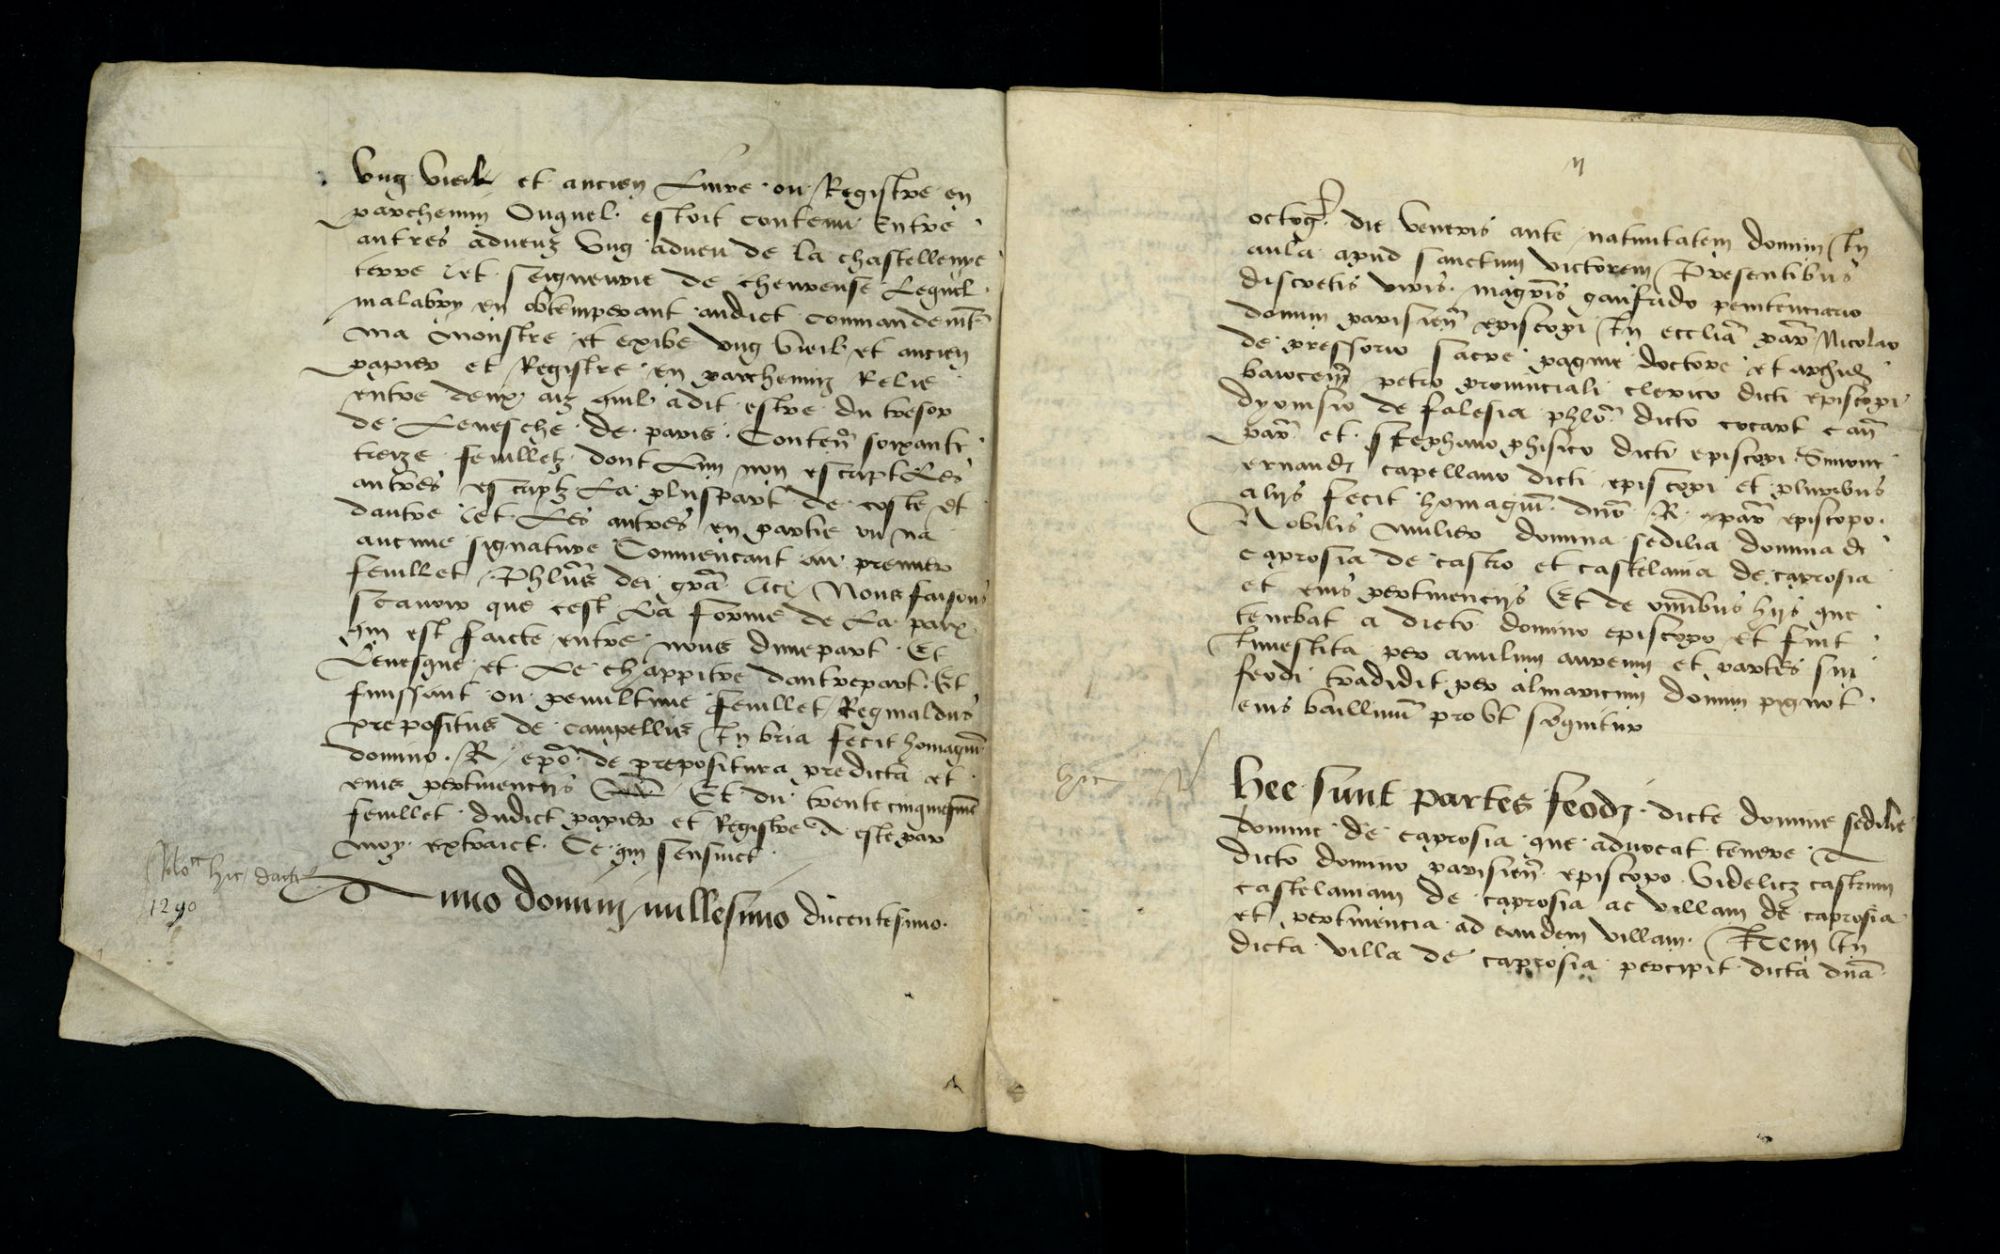 Ung vieil et ancien Livre ou Registre en
parchemin Ouquel estoit contenu Entre
autres adveuz Ung adveu de la chastellenye
terre et seigneurie de chevreuse Lequel
malabry en obtemperant audict commandemt
ma Monstre et exibe ung vieil et ancien
papier et Registre en parchemin Relie
entre deux aiz quil a dit estre du tresor
de Levesche de paris Conten soixante
treize feuilletz dont Lun non escript Les
autres escriptz La pluspart de coste et
dautre et Les autres en partie ou na
aucune signature Commencant ou premier
feuillet Phlus dei gra &c Nous faisons
scavoir que cest La forme de La paix
qui est faicte entre nous dunepart Et
Levesque et Le chappitre dautrepart Et
finissant ou penultime feuillet Reginaldus
prepositus de campellis In bria fecit homagiu
domino R epo de prepositura predicta et
eius pertinenciis Et du trente cinquiesme
feuillet dudict papier et Registre A este par
moy extraict Ce qui sensuict
Nota hic dacte
1290
Anno domini millesimo ducentesimo
II
octog die veneris ante nativitatem domini In
aula apud sanctum victorem Presentibus
discretis viris magris gaufrido penitenciario
domini parisien episcopi In ecclia par Nicolao
de pressorio sacre pagine doctore et archid
baiocen petro provinciali clerico dicti episcopi
dyonisio de falesia phlo dicto cocart can
par et stephano phisico dicti episcopi Simone
ernaudi capellano dicti episcopi et pluribus
aliis fecit homagium dno R par episcopo
Nobilis mulier domina sedilia domina de
caprosia de castro et castelania de caprosia
et eius pertinenciis Et de omnibus hiis que
tenebat a dicto domino episcopo et fuit
Investita per anulum aureum et partes sui
feodi tradidit per almaricum domini pignot
eius baillivum prout sequitur
hic
Hec sunt partes feodi dicte domine sedilie
domine de caprosia que advocat tenere A
dicto domino parisien episcopo videlicet castrum
castelaniam de caprosia ac villam de caprosia
et pertinencia ad eandem villam Item In
dicta villa de caprosia percipit dicta dna